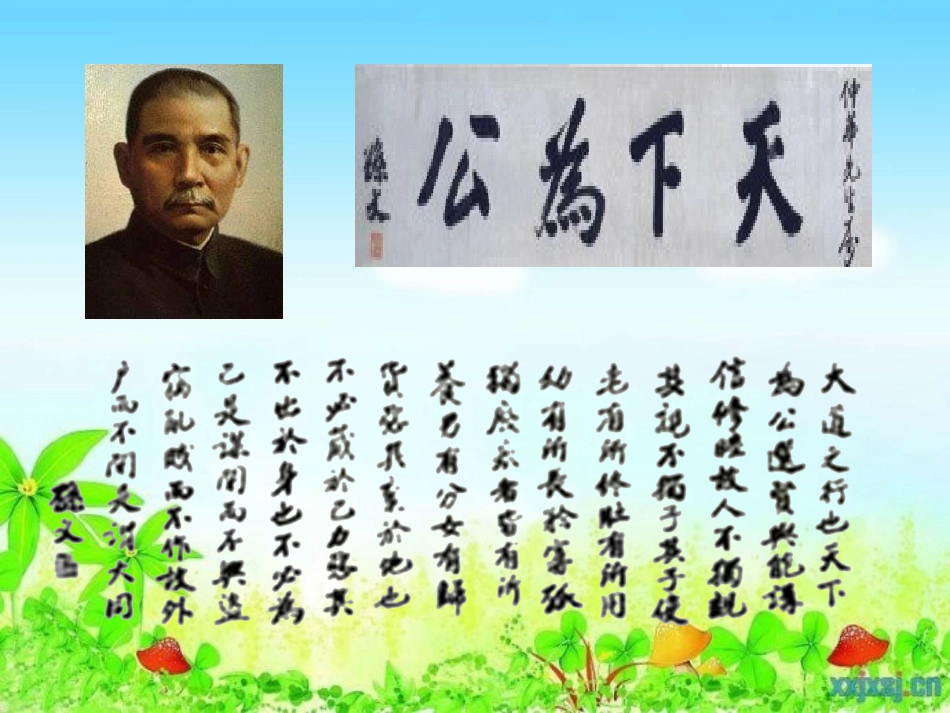 仲華先生屬
天下為公
孫文
大道之行也天下
為公選賢與能講
信修睦故人不獨親
其親不獨子其子使
老有所終壯有所用
幼有所長矜寡孤
獨廢疾者皆有所
養男有分女有歸
貨惡其棄於地也
不必藏於己力惡其
不出於身也不必為
己是謀閉而不興盜
竊乱賊而不作故外
戶而不閉是謂大同
孫文
xxjxsj.cn